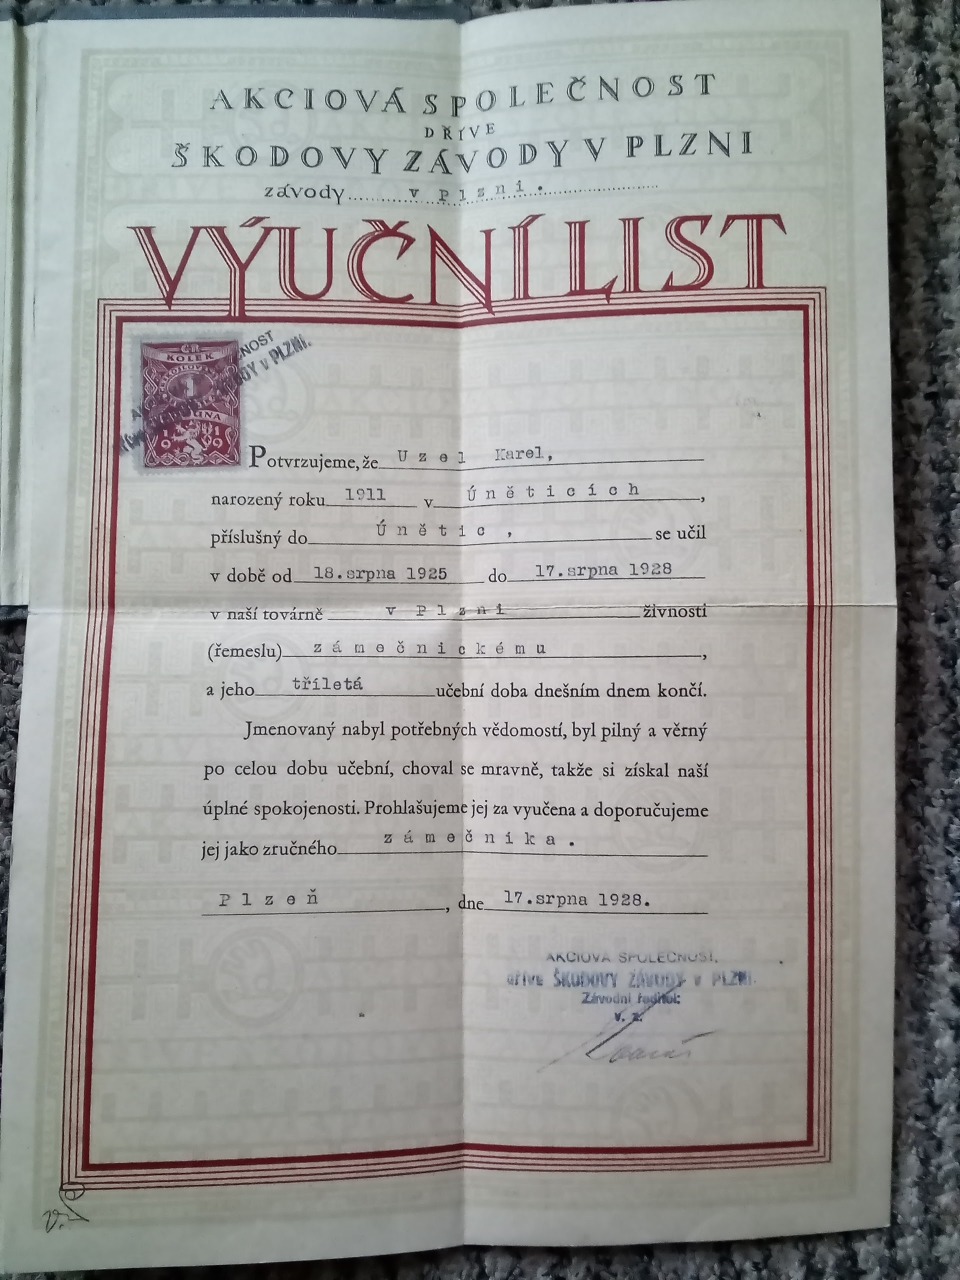 AKCIOVÁ SPOLEČNOST
DŘÍVE
ŠKODOVY ZÁVODY V PLZNI
závody v Plzni.
VÝUČNÍ LIST
KOLEK
1
1919
Potvrzujeme, že Uzel Karel,
narozený roku 1911 v Úněticích,
příslušný do Únětic, se učil
v době od 18.srpna 1925 do 17.srpna 1928
v naší továrně v Plzni živnosti
(řemeslu) zámečnickému,
a jeho tříletá učební doba dnešním dnem končí.
Jmenovaný nabyl potřebných vědomostí, byl pilný a věrný
po celou dobu učební, choval se mravně, takže si získal naší
úplné spokojenosti. Prohlašujeme jej za vyučena a doporučujeme
jej jako zručného zámečníka.
Plzeň, dne 17.srpna 1928.
AKCIOVÁ SPOLEČNOST,
dříve ŠKODOVY ZÁVODY v PLZNI.
Závodní ředitel:
v. z.